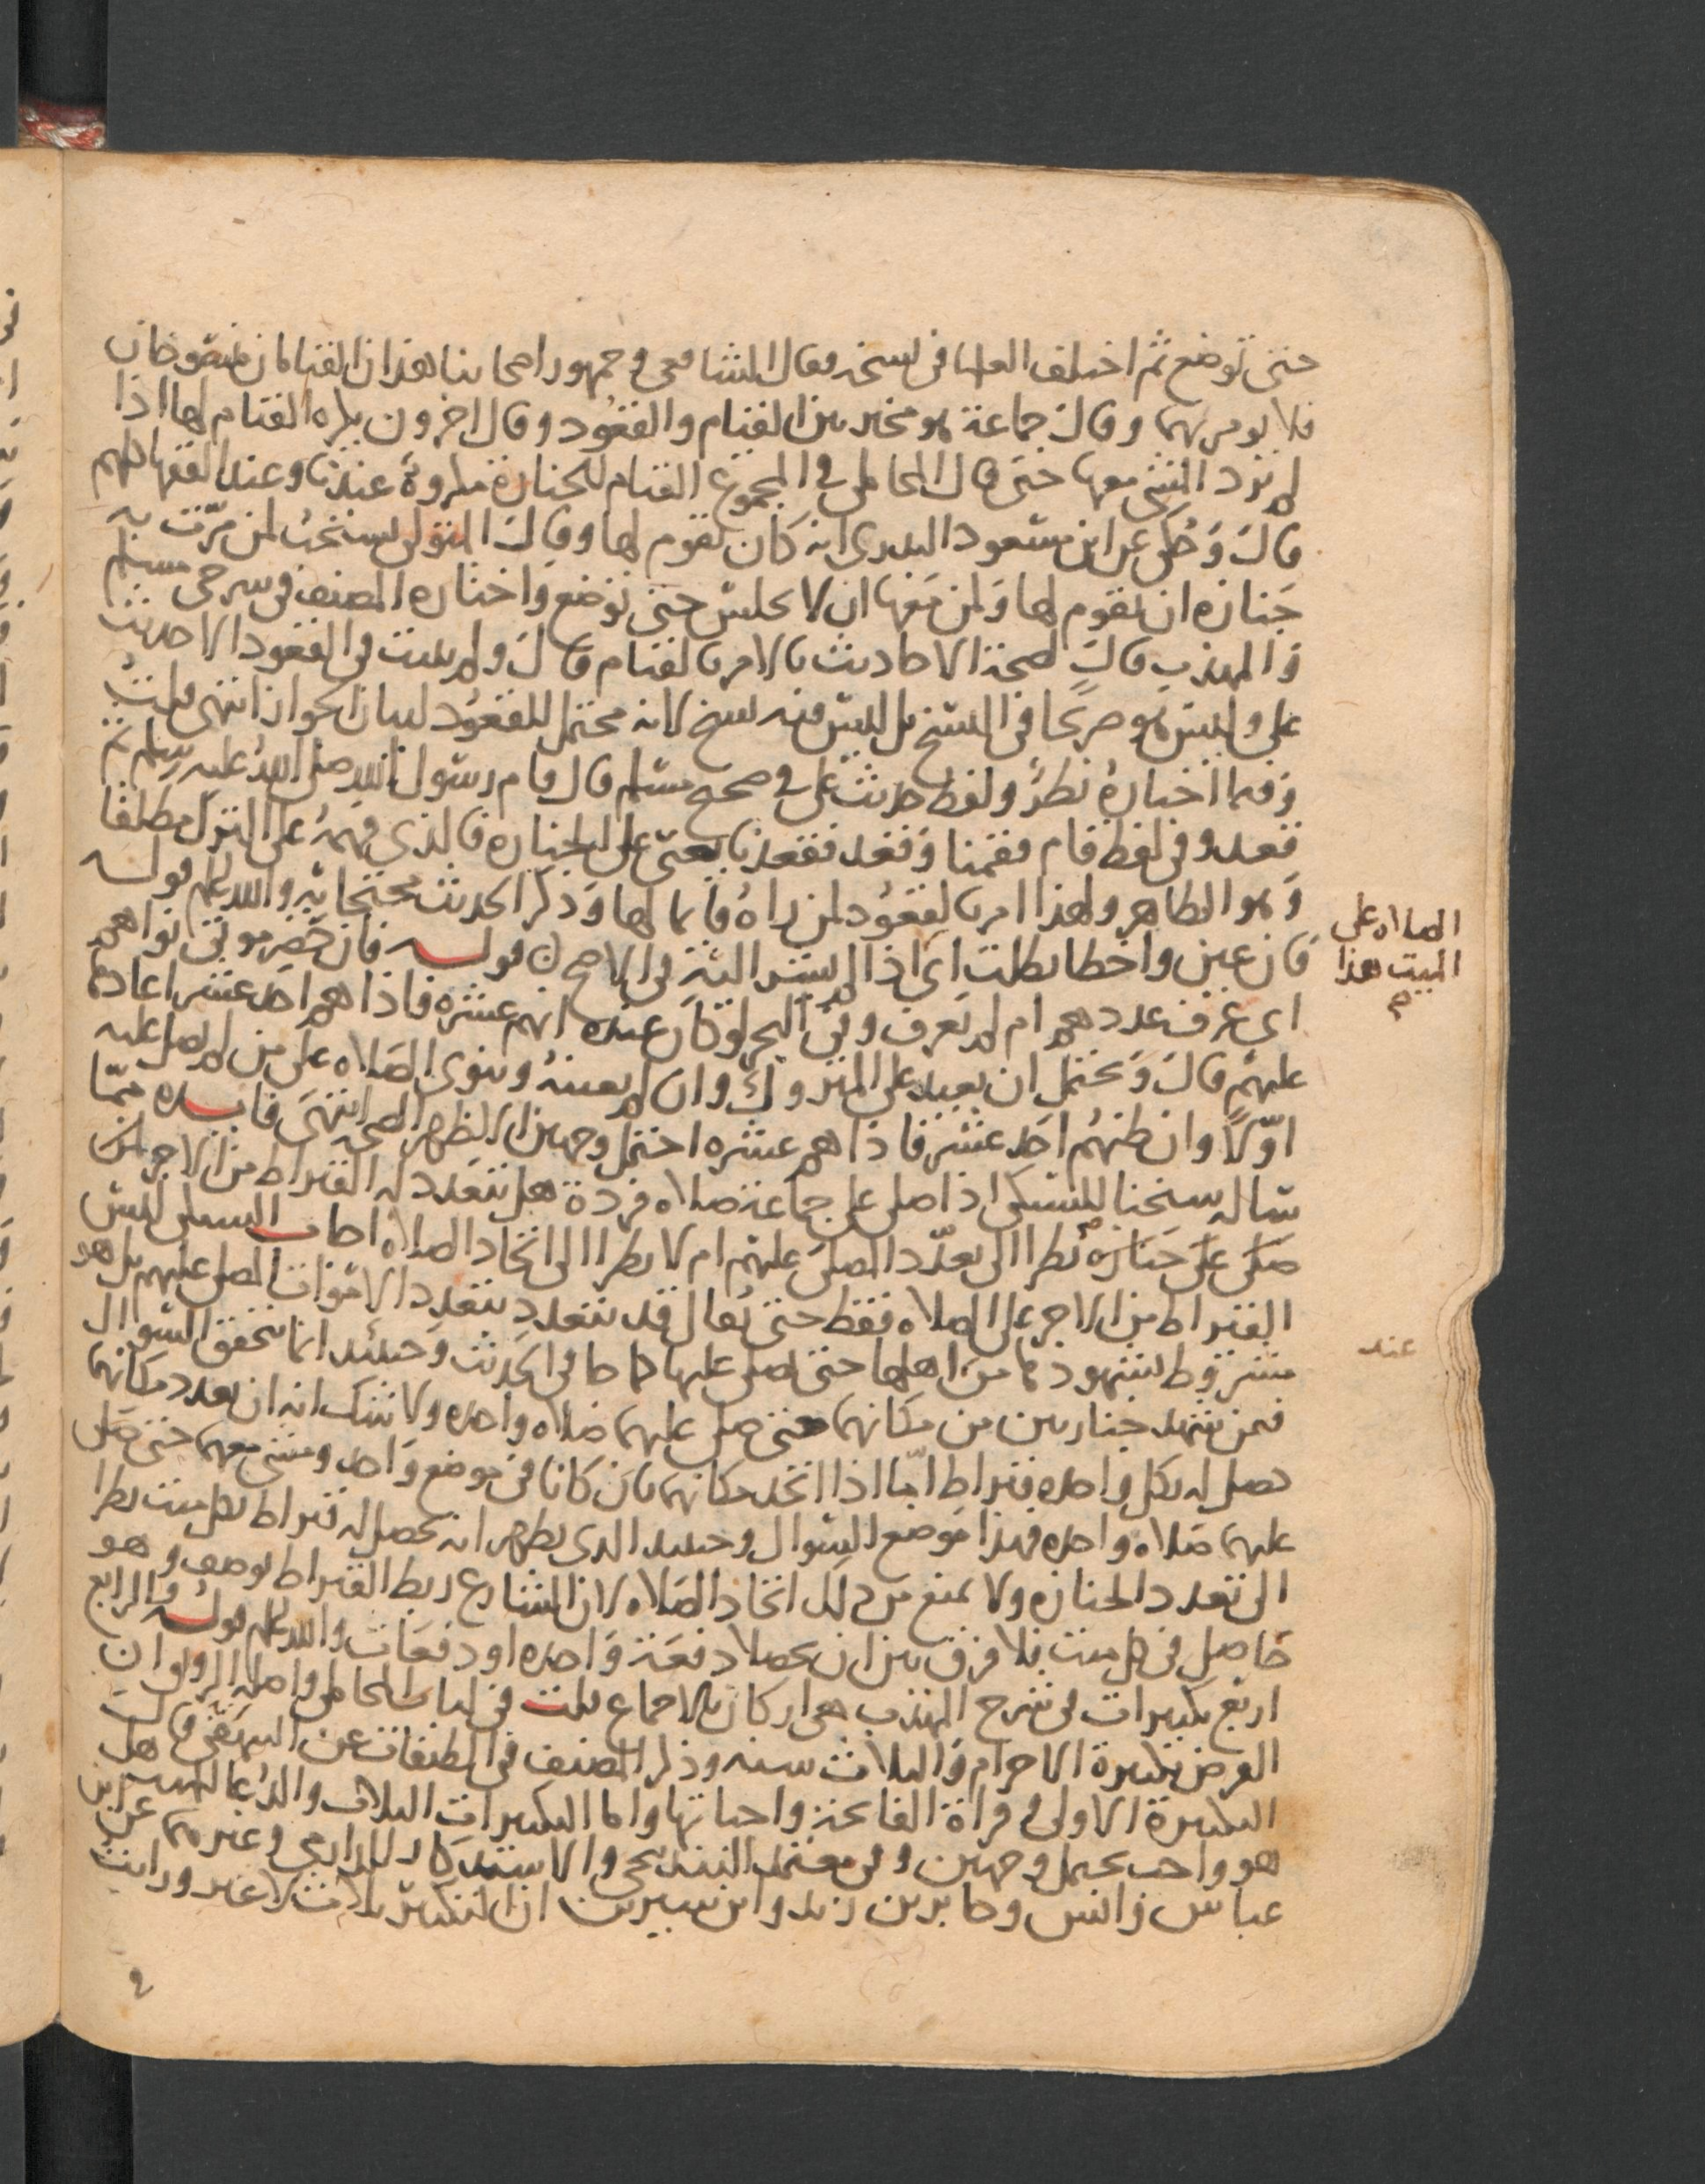 حتى توضع ثم اختلف العلما في نسخه فقال الشافعي وجمهور اصحابنا هذان القيامان منسوخان
فلا يومر بهما وقالت جماعة هو مخير بين القيام والقعود وقال اخرون يكره القيام لها اذا
لم يرد المشي معها حتى قال المحاملي في المجموع القيام للجنازة مكروه عندنا وعند الفقها كلهم
قال وحكي عن ابن مسعود البدري انه كان يقوم لها وقال المتولي يستحب لمن مرت به
جنازه ان يقوم لها ولمن معها ان لا يجلس حتى توضع واختاره المصنف في شرحي مسلم
والمهذب قال لصحة الاحاديث بالامر بالقيام قال ولم يثبت في القعود الا حديث
علي وليس هو صريحا في النسخ بل ليس فيه نسخ لانه محتمل للقعود لبيان الجواز انتهى قلت
وفيما اختاره نظر ولفظ حديث علي في صحيح مسلم قال قام رسول الله صلى الله عليه وسلم ثم
قعد وفي لفظ قام فقمنا وقعد فقعدنا يعني على الجنازه فالذي فهمه علي الترك مطلقا
وهو الظاهر ولهذا امر بالقعود لمن راه قايما لها وذكر الحديث محتجا به والله اعلم قوله
فان عين واخطا بطلت اي اذا لم يشر اليه في الاصح قوله فان حضر موتى نواهم
اي عرف عددهم ام لم يعرف وفي البحر لو كان عنده انهم عشره فاذا هم احد عشر اعادها
عليهم قال ويحتمل ان يعيد على المتروك وان لم يعينه وينوي الصلاه على من لم يصل عليه
اولا وان ظنهم احد عشر فاذا هم عشره احتمل وجهين الاظهر الصحه انتهى فايده مما
ساله شيخنا للسبكي اذا صلى على جماعة صلاه فردة هل يتعدد له القيراط من الاجر لمن
صلى على جنازه نظرا الى تعدد المصلى عليهم ام لا نظرا الى اتحاد الصلاه اجاب السبكي ليس
القيراط من الاجر على الصلاه فقط حتى يقال قد يتعدد بتعدد الاموات المصلى عليهم بل هو
مشروط بشهودها من اهلها حتى يصلى عليها كما جا في الحديث وحينئد انما يتحقق السوال
فمن شهد جنازتين من مكانهما حتى صلى عليهما صلاه واحده ولا شك انه ان تعدد مكانهما
حصل له بكل واحده قيراط اما اذا اتحد مكانهما بان كانا في موضع واحد ومشى معهما حتى صلى
عليهما صلاه واحده فهذا موضع السوال وحينئد الدي يظهر انه يحصل له قيراط بكل ميت نظرا
الى تعدد الجنازه ولا يمنع من ذلك اتحاد الصلاه لان الشارع ربط القيراط بوصف وهو
حاصل في كل ميت فلا فرق بين ان يحصلا دفعة واحده او دفعات والله اعلم قوله الرابع
اربع تكبيرات في شرح المهذب هي اركان بالاجماع قلت في لباب المحاملي واصله ان
الفرض تكبيرة الاحرام والثلاث سنه وذكر المصنف في الطبقات عن البيهقي قال
التكبيرة الاولى وقراة الفاتحة واجباتها واما التكبيرات الثلاث والدعا للميت هل
هو واجب يحتمل وجهين وفي معتمد البندنيجي والاستذكار للدارمي وغيرهما عن ابن
عباس وانس وجابر بن زيد وابن سيرين ان التكبير ثلاث لا غير ورايت
الصلاه على
الميت هذا
عند